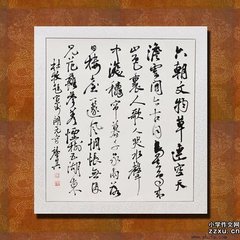 六朝文物草連空天
澹雲閒今古同鳥去鳥來
山色裏人歌人哭水聲
中深秋簾幕千家雨落
日樓臺一篴風惆悵無因
見范蠡參差煙樹五湖東
杜牧題宣州開元
小学作文网
zzxu.cn